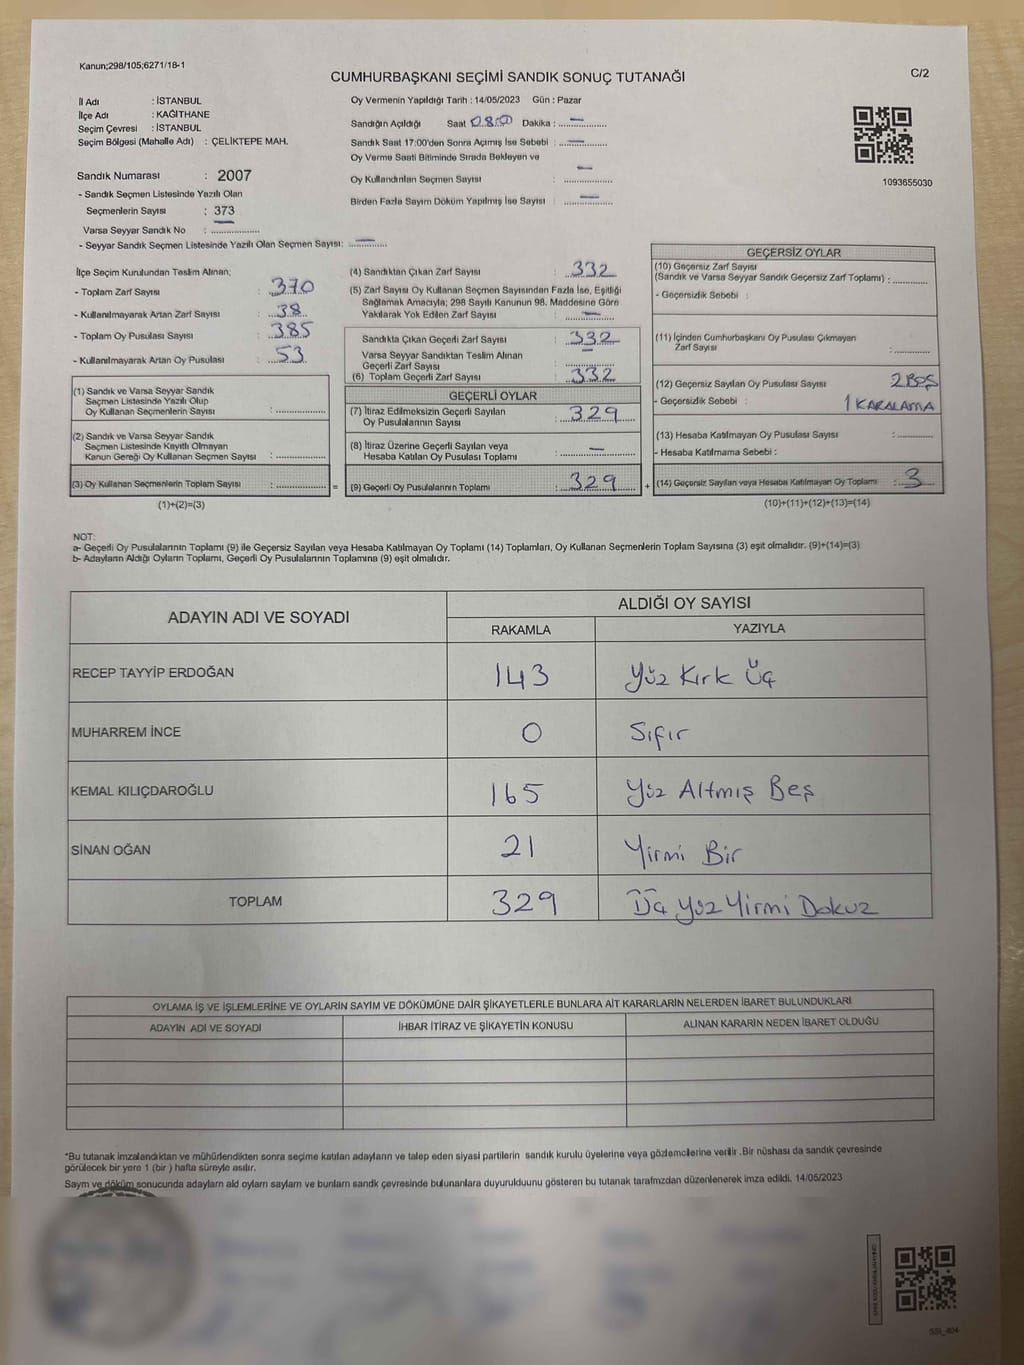 Kanun;298/105;6271/18-1
CUMHURBAŞKANI SEÇİMİ SANDIK SONUÇ TUTANAĞI
C/2
İl Adı : İSTANBUL
İlçe Adı : KAĞITHANE
Seçim Çevresi : İSTANBUL
Seçim Bölgesi (Mahalle Adı) : ÇELİKTEPE MAH.
Sandık Numarası : 2007
- Sandık Seçmen Listesinde Yazılı Olan
Seçmenlerin Sayısı : 373
Varsa Seyyar Sandık No : —
- Seyyar Sandık Seçmen Listesinde Yazılı Olan Seçmen Sayısı: —
Oy Vermenin Yapıldığı Tarih : 14/05/2023 Gün : Pazar
Sandığın Açıldığı Saat 08:00 Dakika : —
Sandık Saat 17:00'den Sonra Açımış İse Sebebi : —
Oy Verme Saati Bitiminde Sırada Bekleyen ve
Oy Kullandırılan Seçmen Sayısı : —
Birden Fazla Sayım Döküm Yapılmış İse Sayısı : —
1093655030
İlçe Seçim Kurulundan Teslim Alınan;
- Toplam Zarf Sayısı : 370
- Kullanılmayarak Artan Zarf Sayısı : 38
- Toplam Oy Pusulası Sayısı : 385
- Kullanılmayarak Artan Oy Pusulası : 53
(1) Sandık ve Varsa Seyyar Sandık
Seçmen Listesinde Yazılı Olup
Oy Kullanan Seçmenlerin Sayısı :
(2) Sandık ve Varsa Seyyar Sandık
Seçmen Listesinde Kayıtlı Olmayan
Kanun Gereği Oy Kullanan Seçmen Sayısı :
(3) Oy Kullanan Seçmenlerin Toplam Sayısı :
(1)+(2)=(3)
=
(4) Sandıktan Çıkan Zarf Sayısı : 332
(5) Zarf Sayısı Oy Kullanan Seçmen Sayısından Fazla İse, Eşitliği
Sağlamak Amacıyla; 298 Sayılı Kanunun 98. Maddesine Göre
Yakılarak Yok Edilen Zarf Sayısı : —
Sandıkta Çıkan Geçerli Zarf Sayısı : 332
Varsa Seyyar Sandıktan Teslim Alınan
Geçerli Zarf Sayısı : —
(6) Toplam Geçerli Zarf Sayısı : 332
GEÇERLİ OYLAR
(7) İtiraz Edilmeksizin Geçerli Sayılan
Oy Pusulasının Sayısı : 329
(8) İtiraz Üzerine Geçerli Sayılan veya
Hesaba Katılan Oy Pusulası Toplamı : —
(9) Geçerli Oy Pusulalarının Toplamı : 329
+
GEÇERSİZ OYLAR
(10) Geçersiz Zarf Sayısı
(Sandık ve Varsa Seyyar Sandık Geçersiz Zarf Toplamı) :
- Geçersizlik Sebebi :
(11) İçinden Cumhurbaşkanı Oy Pusulası Çıkmayan
Zarf Sayısı :
(12) Geçersiz Sayılan Oy Pusulası Sayısı 2 BOŞ
- Geçersizlik Sebebi : 1 KARALAMA
(13) Hesaba Katılmayan Oy Pusulası Sayısı :
- Hesaba Katılmama Sebebi :
(14) Geçersiz Sayılan veya Hesaba Katılmayan Oy Toplamı : 3
(10)+(11)+(12)+(13)=(14)
NOT:
a- Geçerli Oy Pusulalarının Toplamı (9) ile Geçersiz Sayılan veya Hesaba Katılmayan Oy Toplamı (14) Toplamları, Oy Kullanan Seçmenlerin Toplam Sayısına (3) eşit olmalıdır. (9)+(14)=(3)
b- Adayların Aldığı Oyların Toplamı, Geçerli Oy Pusulalarının Toplamına (9) eşit olmalıdır.
ADAYIN ADI VE SOYADI
ALDIĞI OY SAYISI
RAKAMLA YAZIYLA
RECEP TAYYİP ERDOĞAN 143 Yüz Kırk Üç
MUHARREM İNCE 0 Sıfır
KEMAL KILIÇDAROĞLU 165 Yüz Altmış Beş
SİNAN OĞAN 21 Yirmi Bir
TOPLAM 329 Üç Yüz Yirmi Dokuz
OYLAMA İŞ VE İŞLEMLERİNE VE OYLARIN SAYIM VE DÖKÜMÜNE DAİR ŞİKAYETLERLE BUNLARA AİT KARARLARIN NELERDEN İBARET BULUNDUKLARI
ADAYIN ADI VE SOYADI İHBAR İTİRAZ VE ŞİKAYETİN KONUSU ALINAN KARARIN NEDEN İBARET OLDUĞU
*Bu tutanak imzalandıktan ve mühürlendikten sonra seçime katılan adayların ve talep eden siyasi partilerin sandık kurulu üyelerine veya gözlemcilerine verilir .Bir nüshası da sandık çevresinde
görülecek bir yere 1 (bir ) hafta süreyle asılır.
Sayım ve döküm sonucunda adayların ald oyların sayların ve bunların sandk çevresinde bulunanlara duyurulduunu gösteren bu tutanak tarafmzdan düzenlenerek imza edildi. 14/05/2023